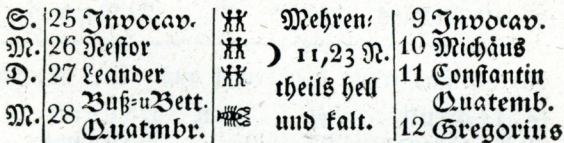 S. 25 Invocav. Mehren= 9 Invocav.
M. 26 Nestor ☽ 11,23 N. 10 Michäus
D. 27 Leander theils hell 11 Constantin
M. 28 Buß=u Bett. und kalt. Quatemb.
Quatmbr. 12 Gregorius